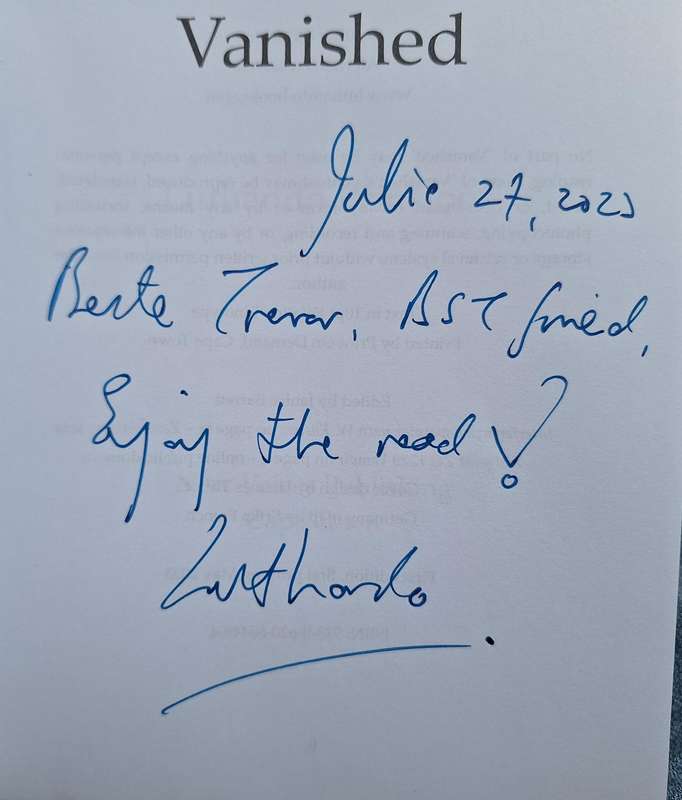 Vanished
Julie 27, 2023
Beste Trevor, BST friend,
Enjoy the read!
Luthando